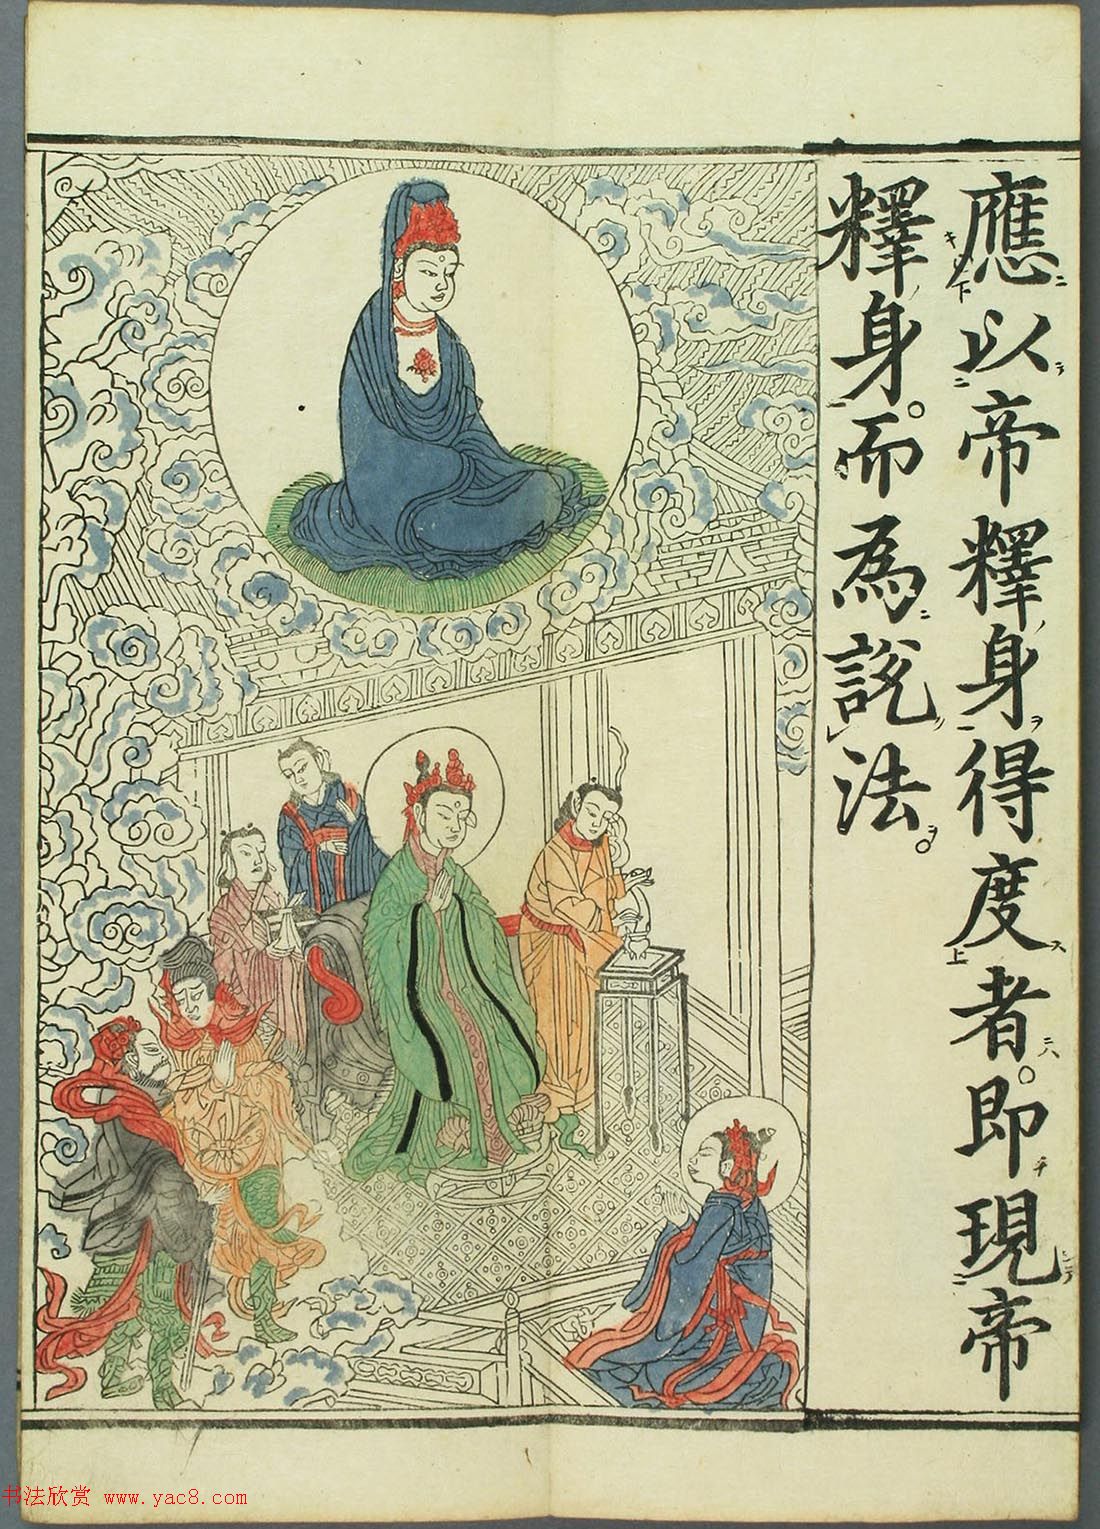 應以帝釋身得度者。即現帝
釋身。而為説法。
书法欣赏 www.yac8.com